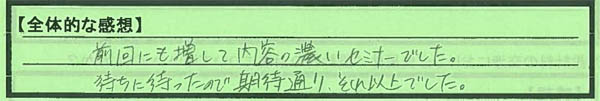 【全体的な感想】
前回にも増して内容の濃いセミナーでした。
待ちに待ったので期待通り、それ以上でした。